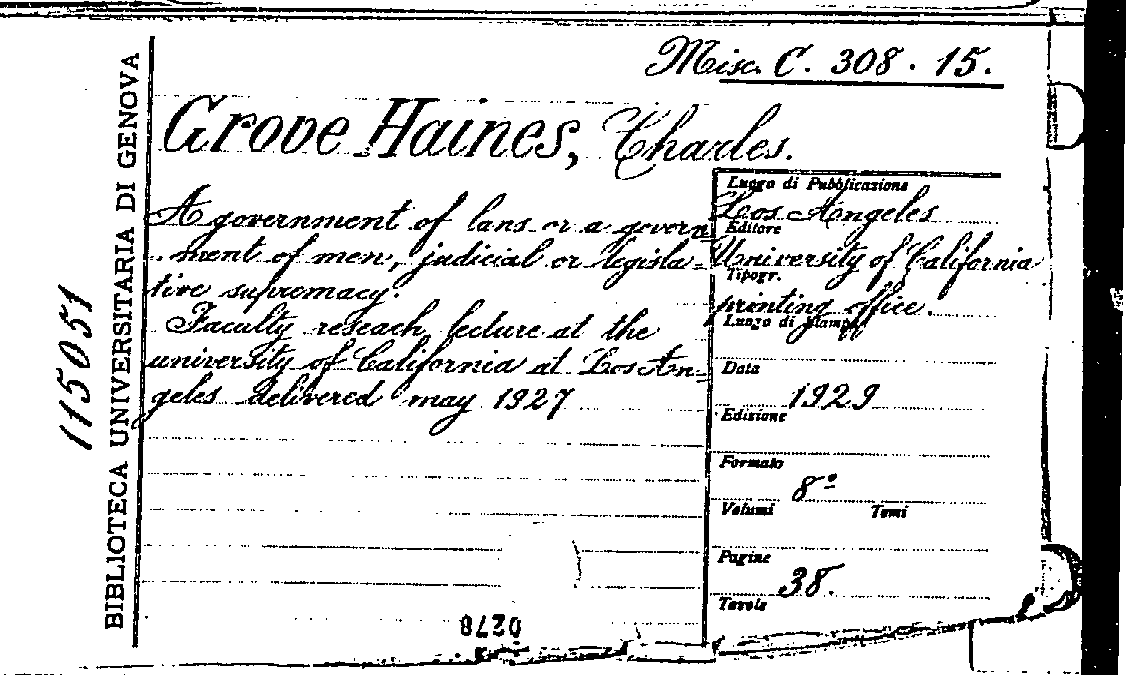 Misc. C. 308. 15.
Grove Haines, Charles.
A government of lans or a govern
ment of men, judicial or legisla-
tive supremacy.
Faculty reseach lecture at the
university of California at Los An=
geles delivered may 1927
Luogo di Pubblicazione
Los Angeles
Editore
University of California
Tipogr.
printing office.
Luogo di Stampa
Data
1929
Edizione
Formato
8º
Volumi Tomi
Pagine
38.
Tavole
BIBLIOTECA UNIVERSITARIA DI GENOVA
115051
0278